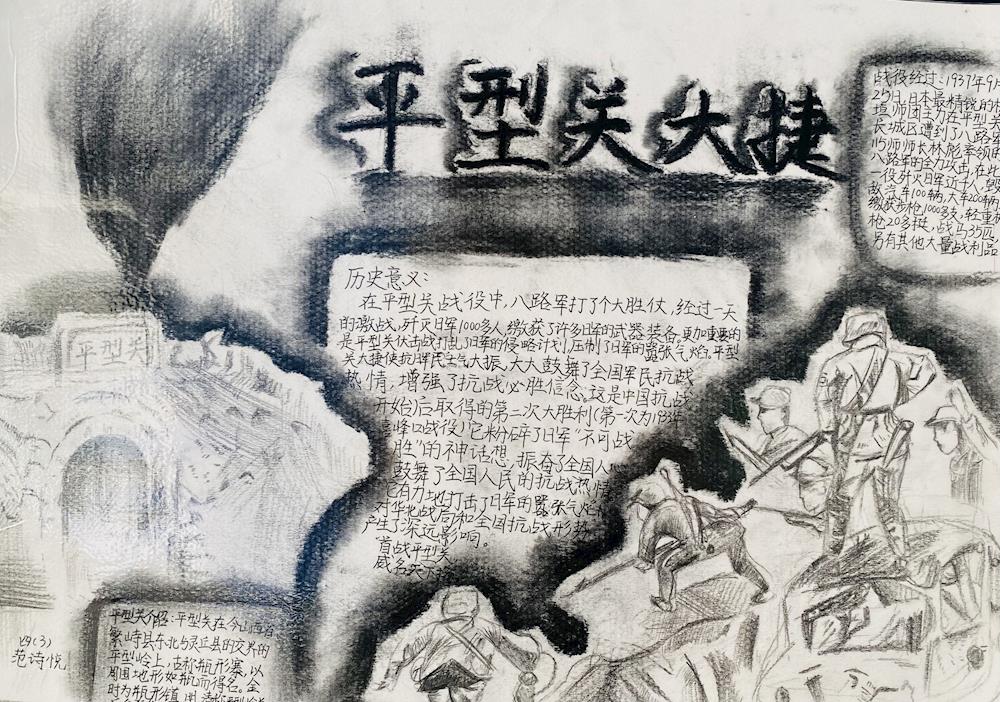 平型关大捷
战役经过:1937年9月
25日,日本最精锐的板
垣师团主力在平型关
长城区遭到了八路军
115师师长林彪率领的
八路军的全力攻击,在此
一役歼灭日军近千人,毁
敌汽车100辆,大车200辆,
缴获步枪1000多支,轻重机
枪20多挺,战马53匹,
另有其他大量战利品
历史意义:
在平型关战役中,八路军打了个大胜仗,经过一天
的激战,歼灭日军1000多人,缴获了许多日军的武器装备。更加重要的
是平型关伏击战打乱了日军的侵略计划,压制了日军的嚣张气焰。平型
关大捷使抗日军民士气大振,大大鼓舞了全国军民抗战
热情,增强了抗战必胜信念。这是中国抗战
开始后取得的第二次大胜利(第一次为1933年
喜峰口战役)它粉碎了日军“不可战
胜”的神话想,振奋了全国人心
鼓舞了全国人民的抗战热情
它有力地打击了日军的嚣张气焰
对华北战局和全国抗战形势
产生了深远影响。
首战平型关
威名天下
平型关
平型关介绍:平型关在今山西省
繁峙县东北与灵丘县的交界的
平型岭上,古称瓶形寨,以
周围地形如瓶而得名。金
时为瓶形镇,
四(3)
范诗悦